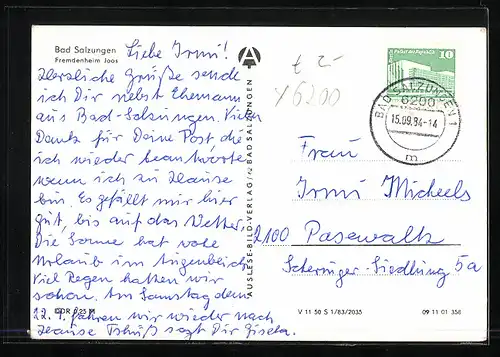 Bad Salzungen
Fremdenheim Joos
Liebe Irmi!
Herzliche Grüße sende
ich Dir nebst Ehemann
aus Bad-Salzungen. Vielen
Dank für Deine Post, die
ich wieder beantworte
wenn ich zu Hause
bin. Es gefällt mir hier
gut, bis auf das Wetter.
Die Sonne hat wohl
Urlaub im Augenblick
Viel Regen hatten wir
schon. Am Samstag dem
DDR 0,25 M
22. 9. fahren wir wieder nach
Hause Tschüß sagt Dir Gisela.
AUSLESE-BILD-VERLAG BAD SALZUNGEN
£ 2-
Y6200
10
BAD SALZUNGEN 1
6200
15.09.84-14
m
Frau
Irmi Michaels
2100 Pasewalk
Scheringer-Siedlung 5a
V 11 50 S 1/83/2035
09 11 01 356